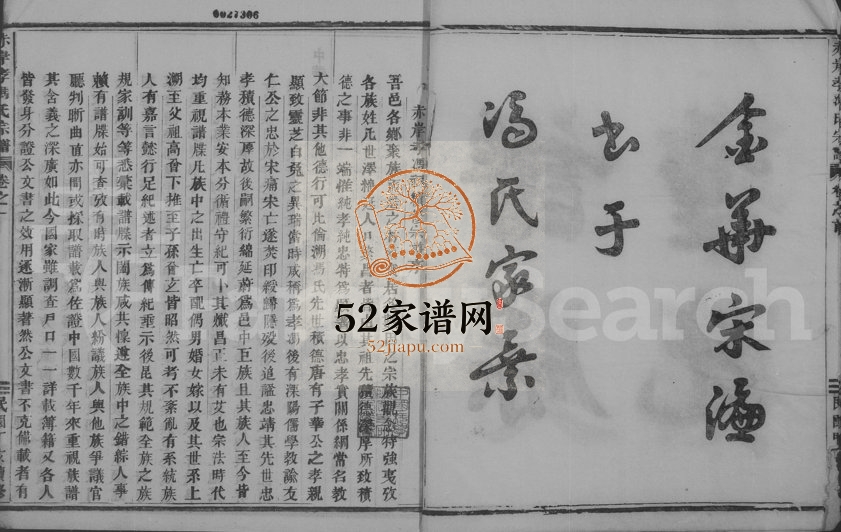 0027306
金華宋濂
書于
馮氏家乘
吾邑各鄉聚族
各族姓氏世澤
德之事非一端惟純孝純忠
大節非其他德行可比倫湖馮氏先世積德唐有子華公之孝親
顯致靈芝白兔之異瑞當時咸稱爲孝馮後有溧陽儒學教諭友
仁公之忠於宋痛宋亡遂焚印綬歸隱歿後追諡忠靖其先世忠
孝積德深厚故後嗣繁衍綿延蔚爲邑中巨族且其族人至今皆
知務本業安本分循禮守紀可卜其熾昌正未有艾也宗法時代
均重視譜牒凡族中之出生亡卒配偶男婚女嫁以及其世系上
溯至父祖高曾下推至子孫曾玄皆昭然可考不紊亂有系統族
人有嘉言懿行足紀述者立爲傳紀垂示後昆其規範全族之族
規家訓等等悉彙載譜牒示闔族咸共維遵全族中之錯綜人事
賴有譜牒始可查攷有時族人與族人粉議族人與他族爭議官
廳判斷曲直亦間或採取譜載爲佐證中國數千年來重視族譜
其含義之深廣如此今國家雖調查戶口一一詳載簿籍又各人
皆發身分證公文書之效用逐漸顯著然公文書不克備載者有
赤岸孝馮氏宗譜
卷之一
52家谱网
52jiapu.com
Search